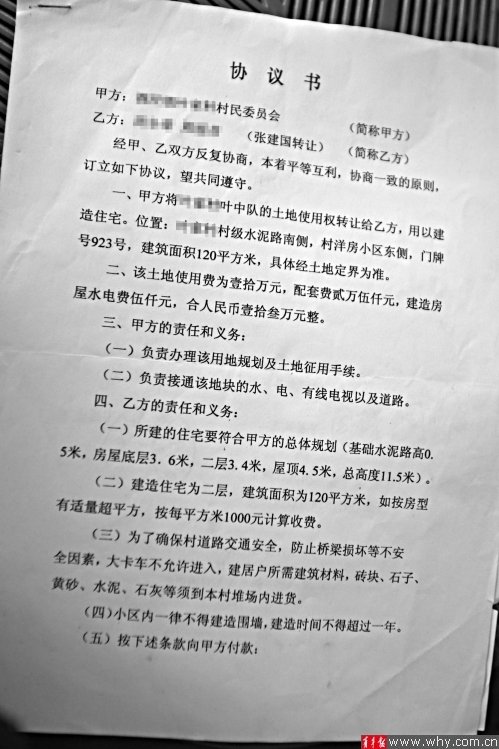 协 议 书
甲方：村民委员会 （简称甲方）
乙方： （张建国转让） （简称乙方）
经甲、乙双方反复协商，本着平等互利，协商一致的原则，
订立如下协议，望共同遵守。
一、甲方将叶中队的土地使用权转让给乙方，用以建
造住宅。位置：村级水泥路南侧，村洋房小区东侧，门牌
号923号，建筑面积120平方米，具体经土地定界为准。
二、该土地使用费为壹拾万元，配套费贰万伍仟元，建造房
屋水电费伍仟元，合人民币壹拾叁万元整。
三、甲方的责任和义务：
（一）负责办理该用地规划及土地征用手续。
（二）负责接通该地块的水、电、有线电视以及道路。
四、乙方的责任和义务：
（一）所建的住宅要符合甲方的总体规划（基础水泥路高0.
5米，房屋底层3.6米，二层3.4米，屋顶4.5米，总高度11.5米）。
（二）建造住宅为二层，建筑面积为120平方米，如按房型
有适量超平方，按每平方米1000元计算收费。
（三）为了确保村道路交通安全，防止桥梁损坏等不安
全因素，大卡车不允许进入，建居户所需建筑材料，砖块、石子、
黄砂、水泥、石灰等须到本村堆场内进货。
（四）小区内一律不得建造围墙，建造时间不得超过一年。
（五）按下述条款向甲方付款：
青年报 www.why.com.cn